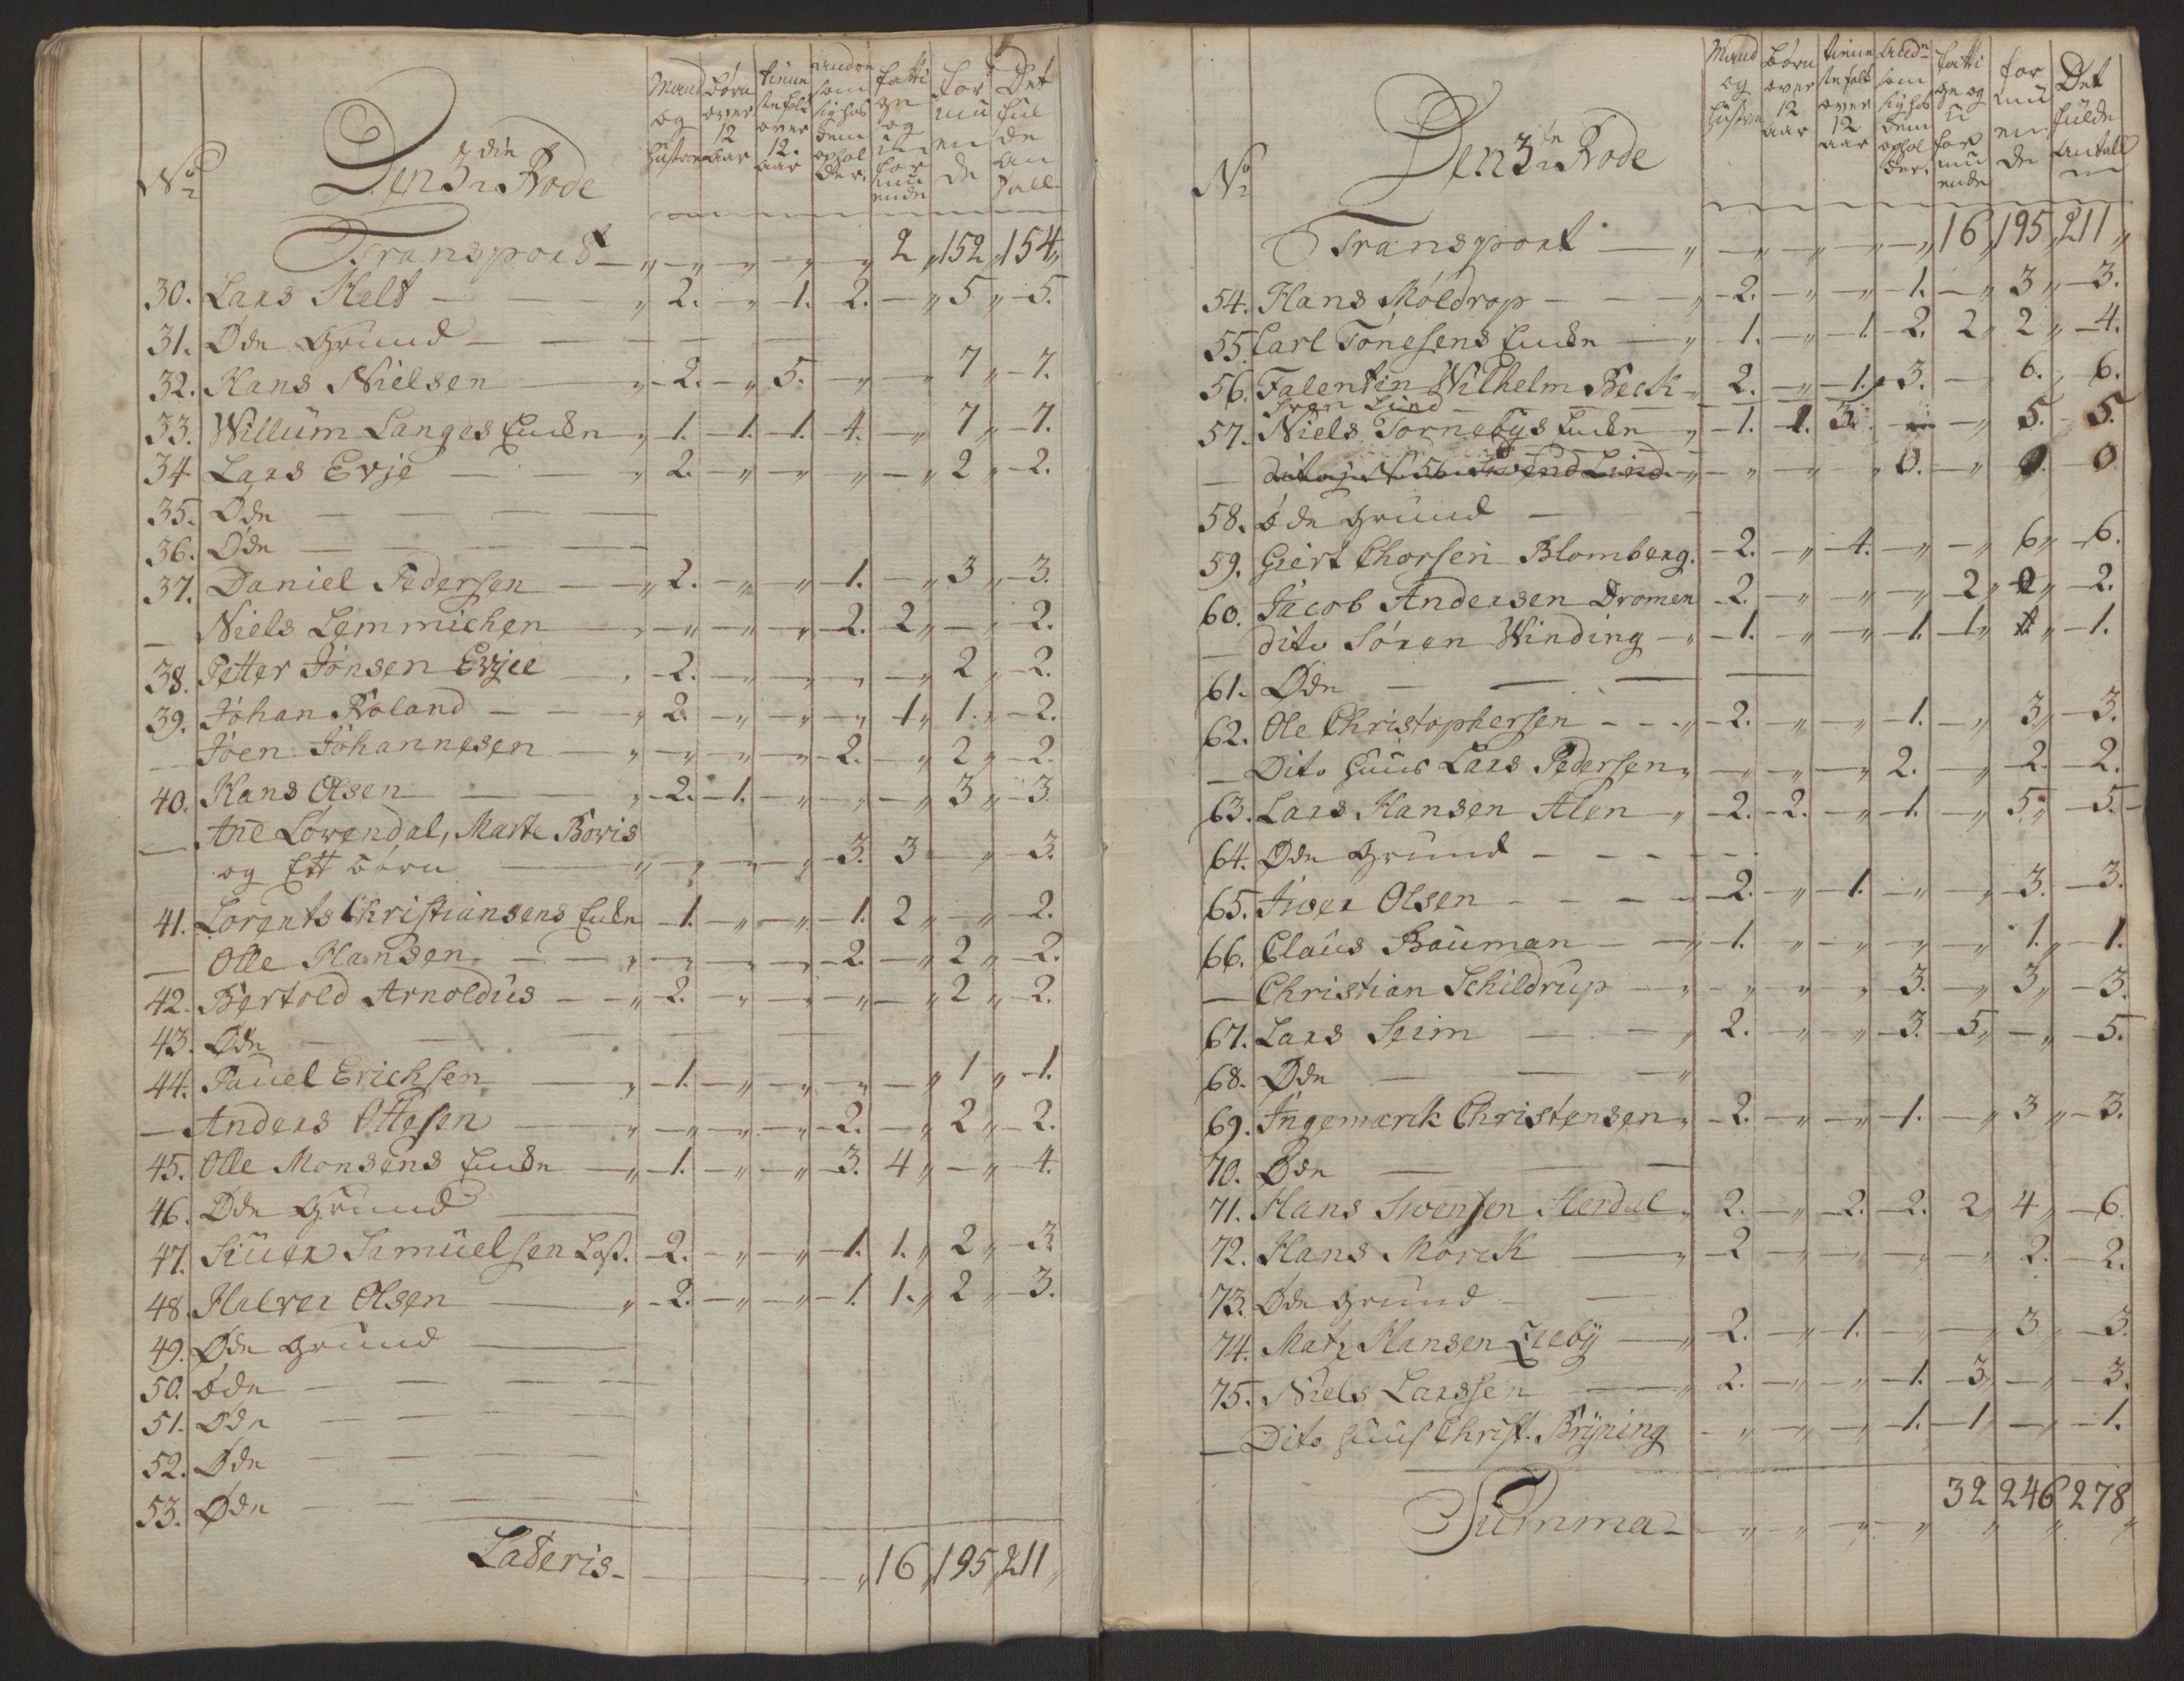 No Den 3die Rode Mand og Hustru Børn over 12 Aar tienne ste folk over 12. Aar Andre som sig hos dem ophol der. fatti ge og uformu ende For mu en de Det ful de an tall
Transport — „ — „ — „ — „ — „ 2 „ 152 „ 154 „
30. Lars Kelt — „ 2. — „ 1. 2. — „ 5 „ 5.
31. Øde Grund —
32. Hans Nielsen — „ 2. — „ 5. — „ — 7 „ 7.
33. Willum Langes Encke „ 1. 1. 1. 4. — „ 7 „ 7.
34 Lars Evje — „ 2. — „ — „ — „ — „ 2 „ 2.
35. Øde —
36. Øde —
37. Daniel Pedersen — „ 2. — „ — „ 1. — „ 3 „ 3.
— Niels Lemmichen — „ — „ — „ — „ 2. 2 „ — „ 2.
38. Petter Jonsen Evjee — „ 2. — „ — „ — „ — „ 2 „ 2.
39. Johan Roland — „ 2. — „ — „ — „ 1 „ 1. „ 2.
— Joen Johannesen — „ — „ — „ — „ 2. — „ 2 „ 2.
40. Hans Olsen — „ 2. 1. — „ — „ — „ 3 „ 3
— Ane Lovendal, Marte Boris
og Ett børn — „ — „ — „ — „ 3. 3 — „ 3.
41. Lorents Christiansens Encke 1. — „ — „ 1. 2 „ — „ 2.
— Olle Hansen — „ — „ — „ — „ 2. — „ 2 „ 2.
42. Bertold Arnoldus — „ 2. — „ — „ — „ — „ 2 „ 2.
43. Øde —
44. Pauel Erichsen — „ 1. — „ — „ — „ — „ 1 „ 1.
— Anders Ottesen — „ — „ — „ — „ 2. — „ 2 „ 2.
45. Olle Monsens Encke — „ 1. — „ — „ 3. 4 „ — „ 4.
46. Øde Grund —
47. Siuer Samuelsen Loß. 2. — „ — „ 1. 1. „ 2 „ 3
48. Halver Olsen — „ 2. — „ — „ 1. 1. „ 2 „ 3.
49. Øde Grund —
50. Øde —
51. Øde —
52. Øde —
53. Øde —
Lateris — „ 16 „ 195 „ 211 „
No Den 3de Rode Mand og Hustru Børn over 12 Aar tienne ste folk over 12 Aar Andre som sig hos dem ophol der. fatti ge og u for mu ende for mu en de Det fulde antall
Transport — „ — „ — „ — „ — „ 16 „ 195 „ 211 „
54. Hans Moldrop — „ 2. — „ — „ 1. — „ 3 „ 3.
55. Carl Tønesens Encke — „ 1. — „ 1. 2. 2 „ 2 „ 4.
56. Falentin Wilhelm Beck „ 2. — „ 1. 3. — 6. „ 6.
Sven Lind
57. Niels Tornebys Encke — „ 1. 1. 3. — „ 5. 5.
— dito N 56 Svend Lind — „ — „ — „ — „ 0. — „ 0. 0
58. Øde Grund —
59. Giert Thorsen Blomberg. 2. — „ 4. — „ — „ 6 „ 6.
60. Jacob Andersen Dromen 2. — „ — „ — „ 2 „ 0 „ 2.
— dito Søren Winding — „ 1. — „ — „ 1. 1 „ „ 1.
61. Øde —
62. Ole Christophersen — „ 2. — „ — „ 1. — „ 3 „ 3.
— Dito Huus Lars Pedersen „ — „ — „ — „ 2. — „ 2. 2.
63. Lars Hansen Alen — „ 2. 2. — „ 1. — „ 5 „ 5.
64. Øde Grund —
65. Iwer Olsen — 2. — „ 1. — „ — „ 3. 3.
66. Claus Bauman — „ 1. — „ — „ — „ — „ 1. „ 1.
— Christian Schildrup — „ — „ — „ — „ 3. — „ 3 „ 3.
67. Lars Seim — „ 2. — „ — „ 3. 5 „ — „ 5.
68. Øde — „
69. Ingemarck Christensen „ 2. — „ — „ 1. — „ 3 „ 3.
70. Øde —
71. Hans Swensen Herdal „ 2. — „ 2. 2. 2 „ 4 „ 6.
72. Hans Mørck — „ 2 — „ — „ — „ — „ 2. 2.
73. Øde Grund —
74. Matz Hansen Leeby — „ 2. — „ 1. — „ — „ 3 „ 3.
75. Niels Larssen — „ 2. — „ — „ 1. 3 „ — „ 3.
— Dito Huus Christ. Bryning — „ — „ — „ 1. 1 „ — „ 1.
Summa — „ — „ — „ — „ 32 246 278